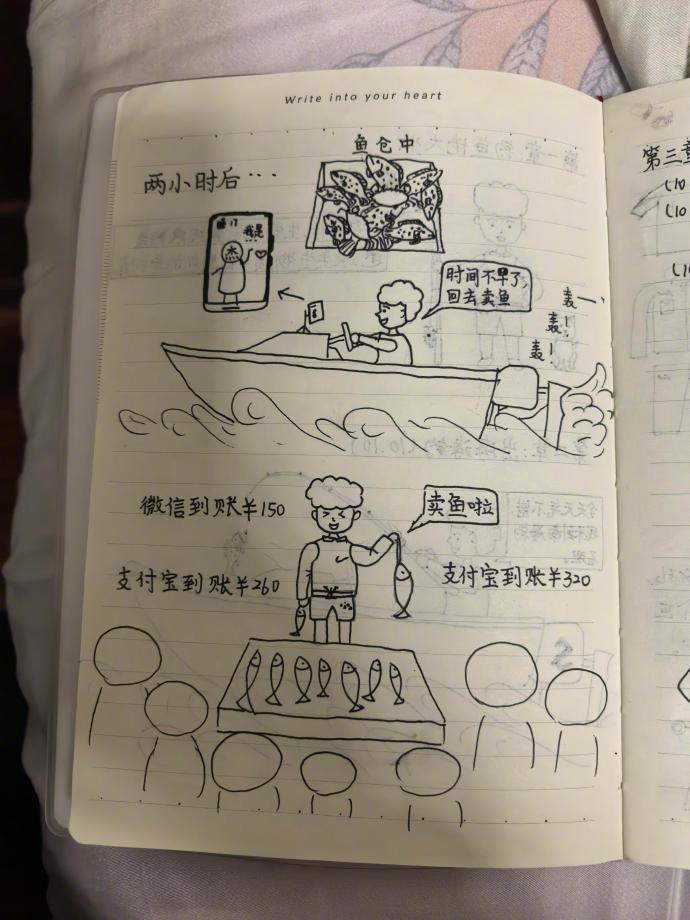 Write into your heart
鱼仓中
两小时后…
我是…
时间不早了,
回去卖鱼
轰一,
轰!
轰!
微信到账¥150
卖鱼啦
支付宝到账¥260
支付宝到账¥320
第三章
(10
(10
(10